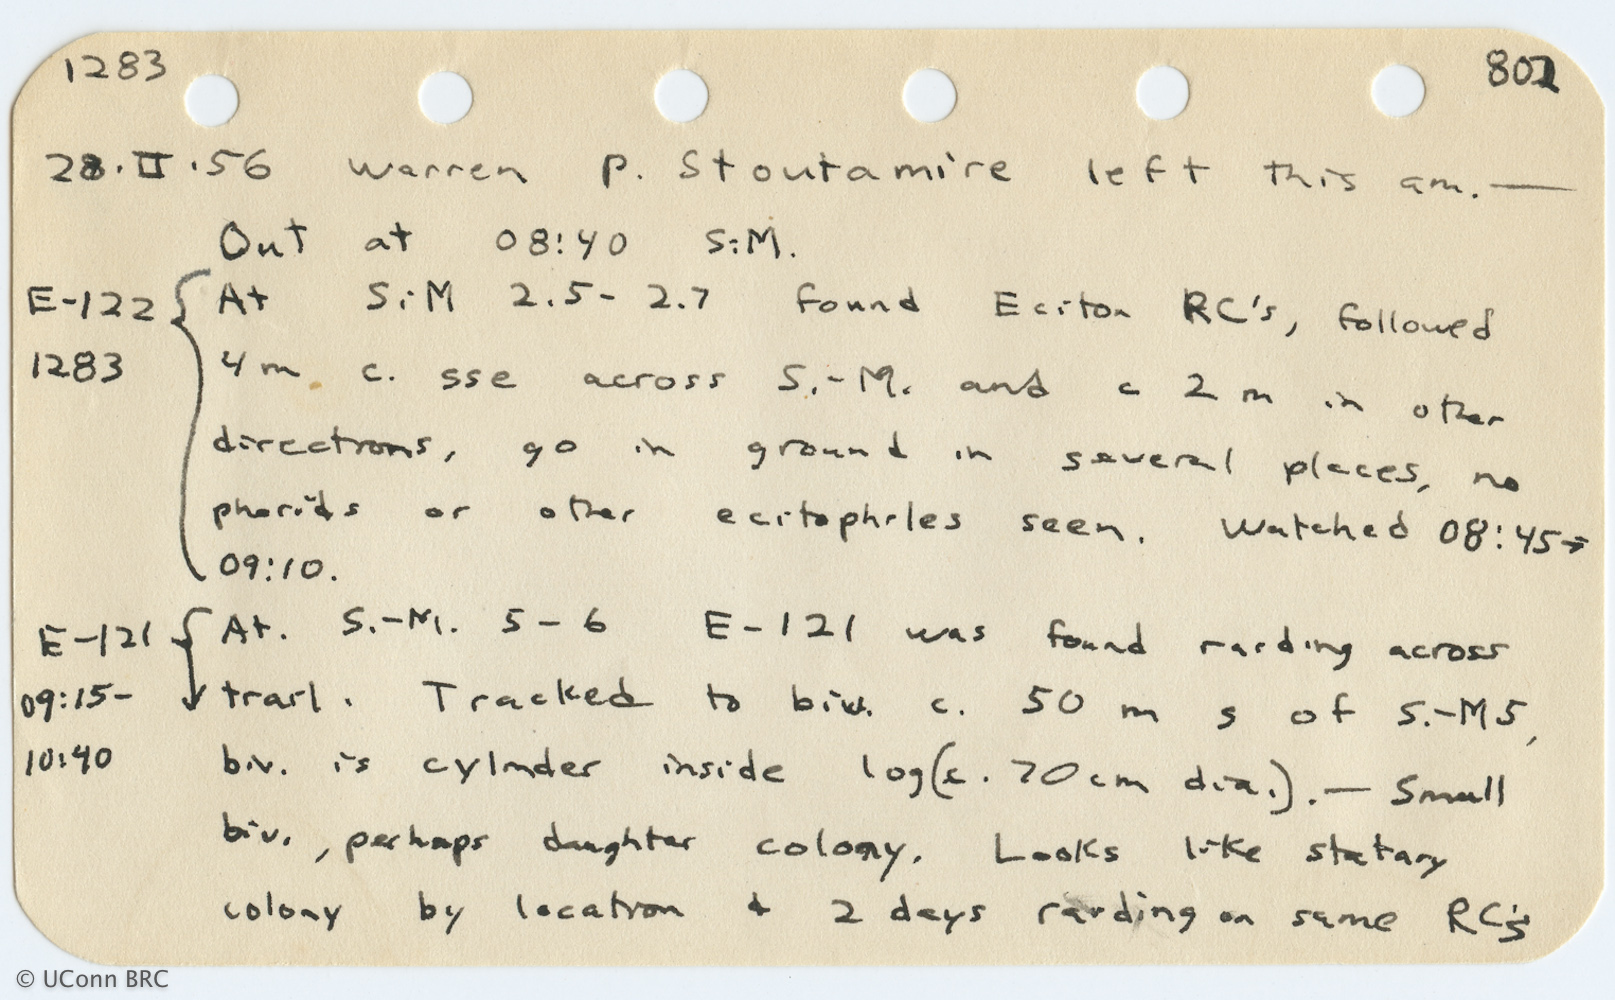 1283 802
28.II.56 Warren P. Stoutamire left this am.—
Out at 08:40 S:M.
E-122 At S:M 2.5-2.7 found Eciton RC's, followed
1283 4 m c. sse across S.-M. and c 2 m in other
directions, go in ground in several places, no
phorids or other ecitophiles seen. Watched 08:45→
09:10.
E-121 At. S.-M. 5-6 E-121 was found raiding across
09:15- trail. Tracked to biv. c. 50 m s of S.-M5,
10:40 biv. is cylinder inside log (c. 70cm dia.).— Small
biv., perhaps daughter colony. Looks like statary
colony by location & 2 days raiding on same RC's
© UConn BRC